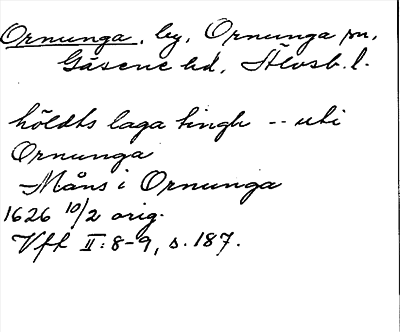 Ornunga, by, Ornunga sn,
Gäsene hd, Älvsb. l.
höldts laga tingh -- uti
Ornunga
Måns i Ornunga
1626 10/2 orig.
Vfl II: 8-9, s. 187.